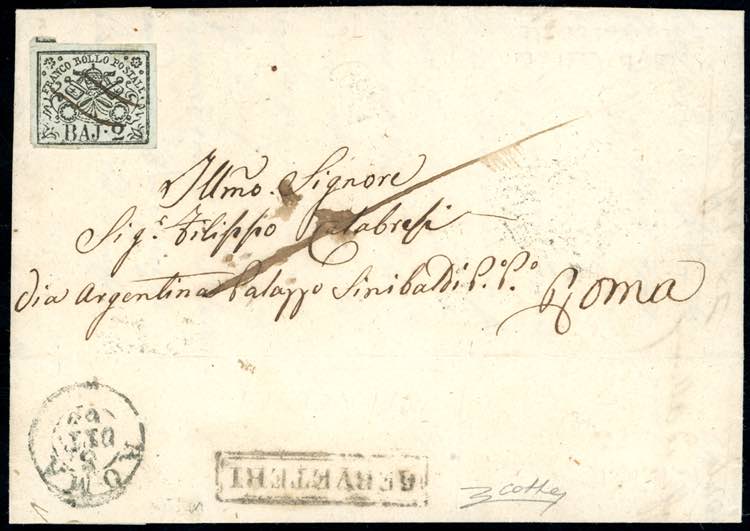 FRANCO BOLLO POSTALE
BAJ. 2
Illmo. Signore
Sigr. Filippo Calabresi
Via Argentina Palazzo Sinibaldi P.o P.o
Roma
ROMA
8
OTT
CERVETERI